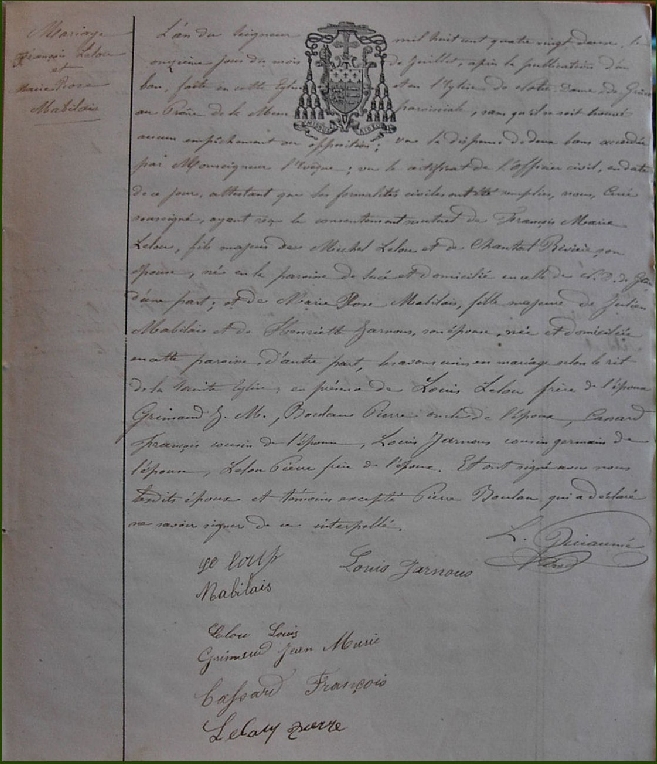 Mariage
François Lelou
et
Marie Rose
Mabilais
L'an du Seigneur mil huit cent quatre vingt deux, le
onzième jour du mois de Juillet, après la publication d'un
ban, faite en cette Eglise et en l'Eglise de Notre Dame de
au Prône de la Messe paroissiale, sans qu'il se soit trouvé
aucun empêchement ou opposition; vu la dispense de deux bans accordée
par Monseigneur l'Evêque; vu le certificat de l'Officier civil, en date
de ce jour, attestant que les formalités civiles ont été remplies, nous, Curé
soussigné, ayant reçu le consentement mutuel de François Marie
Lelou, fils majeur de Michel Lelou et de Chantal Rivière, son
épouse, né en la paroisse de Sucé et domicilié en celle de N. D. de
d'une part; et de Marie Rose Mabilais, fille majeure de Julien
Mabilais et de Henriette Jarnoux, son épouse, née et domiciliée
en cette paroisse, d'autre part, les avons unis en mariage selon le rit
de la Sainte Eglise, en présence de Louis Lelou frère de l'époux
Grimaud J. M., Boulau Pierre oncle de l'époux,
François cousin de l'époux, Louis Jarnoux cousin germain de
l'épouse, Lelou Pierre frère de l'époux. Et ont signé avec nous
lesdits époux et témoins excepté Pierre Boulau, qui a déclaré
ne savoir signer de ce interpellé.
Mabilais
Louis Jarnoux
Lelou Louis
Grimaud Jean Marie
Cassard François